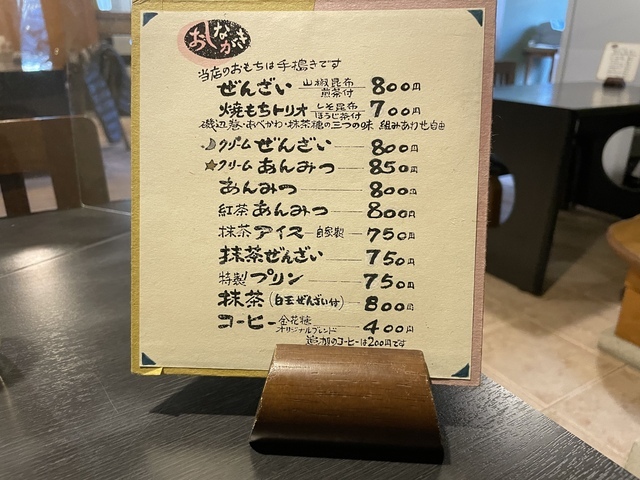 おしながき
当店のおもちは手搗きです
ぜんざい 山椒昆布 煎茶付 800円
焼もちトリオ しそ昆布 ほうじ茶付 700円
磯辺巻・あべかわ・抹茶糖の三つの味 組みあわせ自由
クリームぜんざい 800円
クリームあんみつ 850円
あんみつ 800円
紅茶あんみつ 800円
抹茶アイス 自家製 750円
抹茶ぜんざい 750円
特製プリン 750円
抹茶(白玉ぜんざい付) 800円
コーヒー 金花糖 オリジナルブレンド 400円
追加のコーヒーは200円です